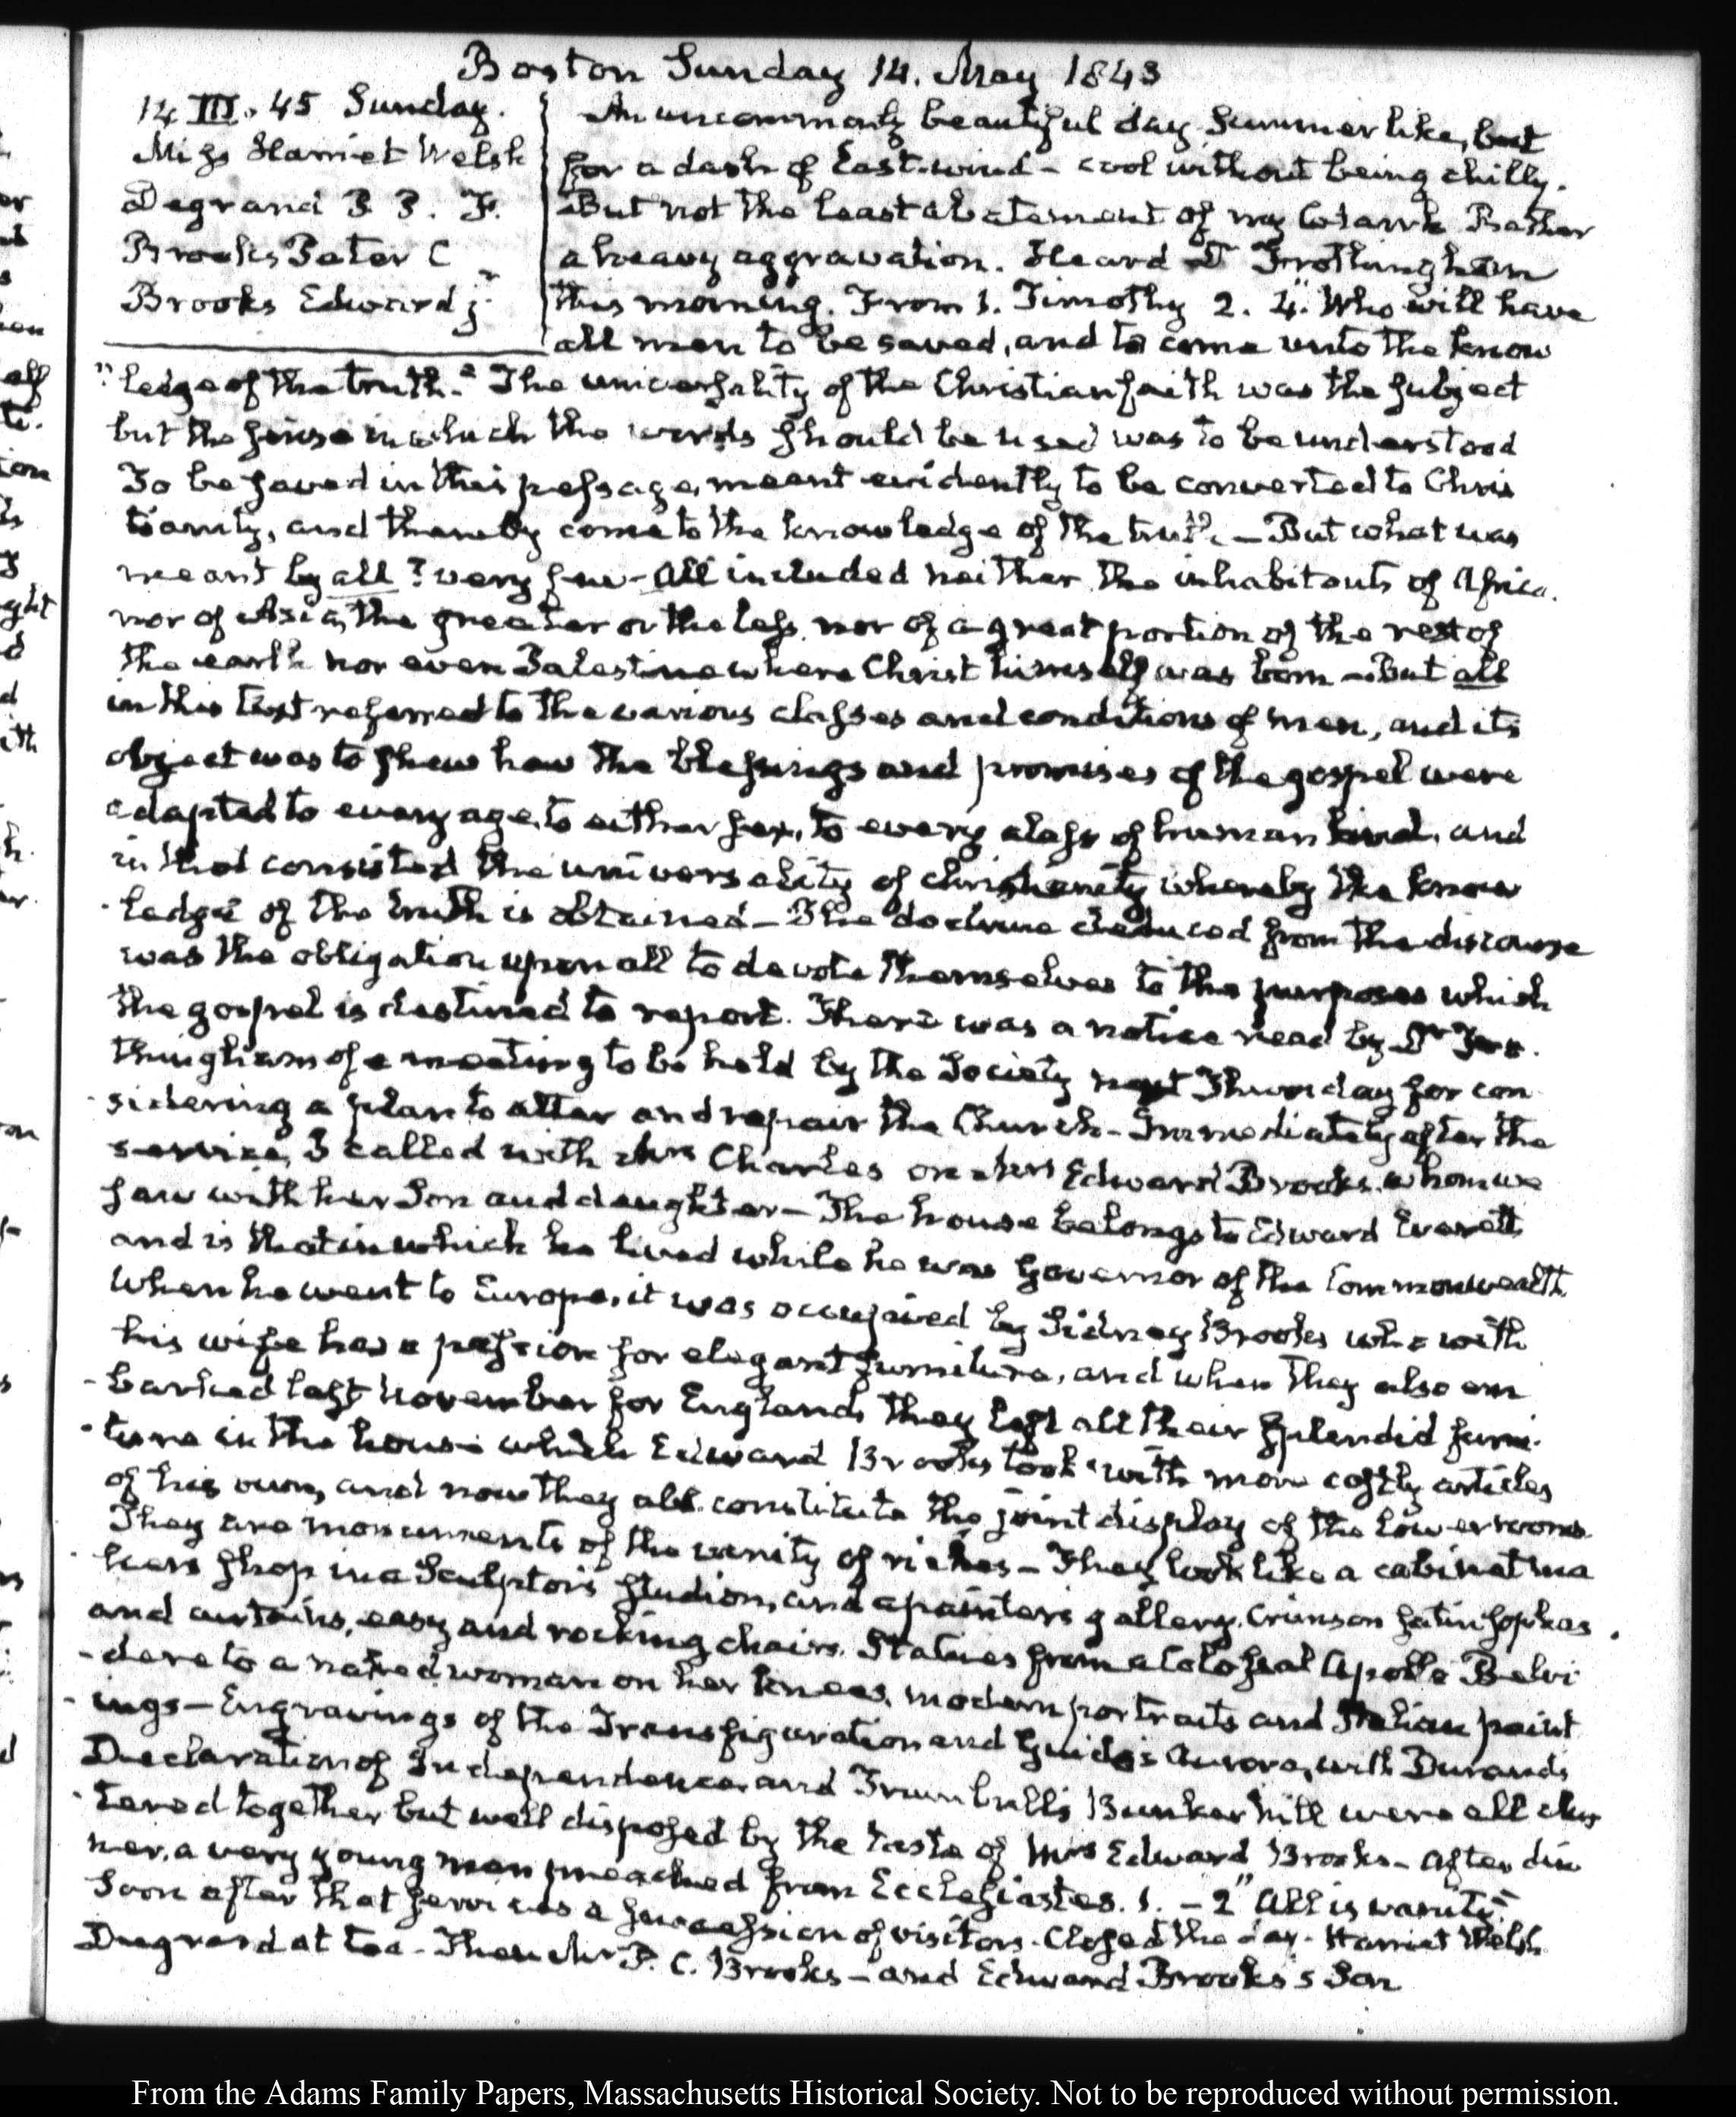 Boston Sunday 14. May 1843
14. III. 45 Sunday.
Miss Harriet Welsh
Degrand P. P. F.
Brooks Peter C
Brooks Edward jr
An uncommonly beautiful day Summer like, but
for a dash of East-wind - cool without being chilly.
But not the least abatement of my Catarrh Rather
a heavy aggravation. Heard Dr Frothingham
this morning. From 1. Timothy 2. 4. "Who will have
all men to be saved, and to come unto the know
"ledge of the truth." The universality of the Christian faith was the subject
but the sense in which the words should be used was to be understood
To be saved in this passage, meant evidently to be converted to Chris
tianity, and thereby come to the knowledge of the truth - But what was
meant by all? very few - All included neither the inhabitants of Africa.
nor of Asia, the greater or the less, nor of a great portion of the rest of
the earth nor even Palestine where Christ himself was born - But all
in this text referred to the various classes and conditions of men, and its
object was to shew how the blessings and promises of the gospel were
adapted to every age, to either sex, to every class of human kind, and
in that consisted the universality of christianity whereby the know
ledge of the truth is obtained - The doctrine deduced from the discourse
was the obligation upon all to devote themselves to the purposes which
the gospel is destined to report. There was a notice read by Dr Fro-
thingham of a meeting to be held by the Society next Thursday for con
-sidering a plan to alter and repair the Church - Immediately after the
service, I called with Mrs Charles on Mrs Edward Brooks, whom we
saw with her Son and daughter - The house belongs to Edward Everett
and is that in which he lived while he was Governor of the Commonwealth
When he went to Europe, it was occupied by Sidney Brooks who with
his wife has a passion for elegant furniture, and when they also em
-barked last November for England, they left all their splendid furni-
-ture in the house which Edward Brooks took with more costly articles
of his own, and now they all constitute the joint display of the lower rooms
They are monuments of the vanity of riches - They look like a cabinet ma
-kers shop in a Sculptor's studion, and a painter's gallery. Crimson satin sophas
and curtains, easy and rocking chairs. Statues from a Colossal Apollo Belvi
-dere to a naked woman on her knees, modern portraits and Italian paint
-ings - Engravings of the Transfiguration and Guido's Aurora, with Durand's
Declaration of Independence, and Trumbull's Bunker hill were all clus
-tered together but well disposed by the taste of Mrs Edward Brooks - After din
ner, a very young man preached from Ecclesiastes. 1. - 2 "All is vanity."
Soon after that service a succession of visitors. Closed the day. Harriet Welsh
Degrand at tea - Then Mr P. C. Brooks - and Edward Brooks's Son
From the Adams Family Papers, Massachusetts Historical Society. Not to be reproduced without permission.